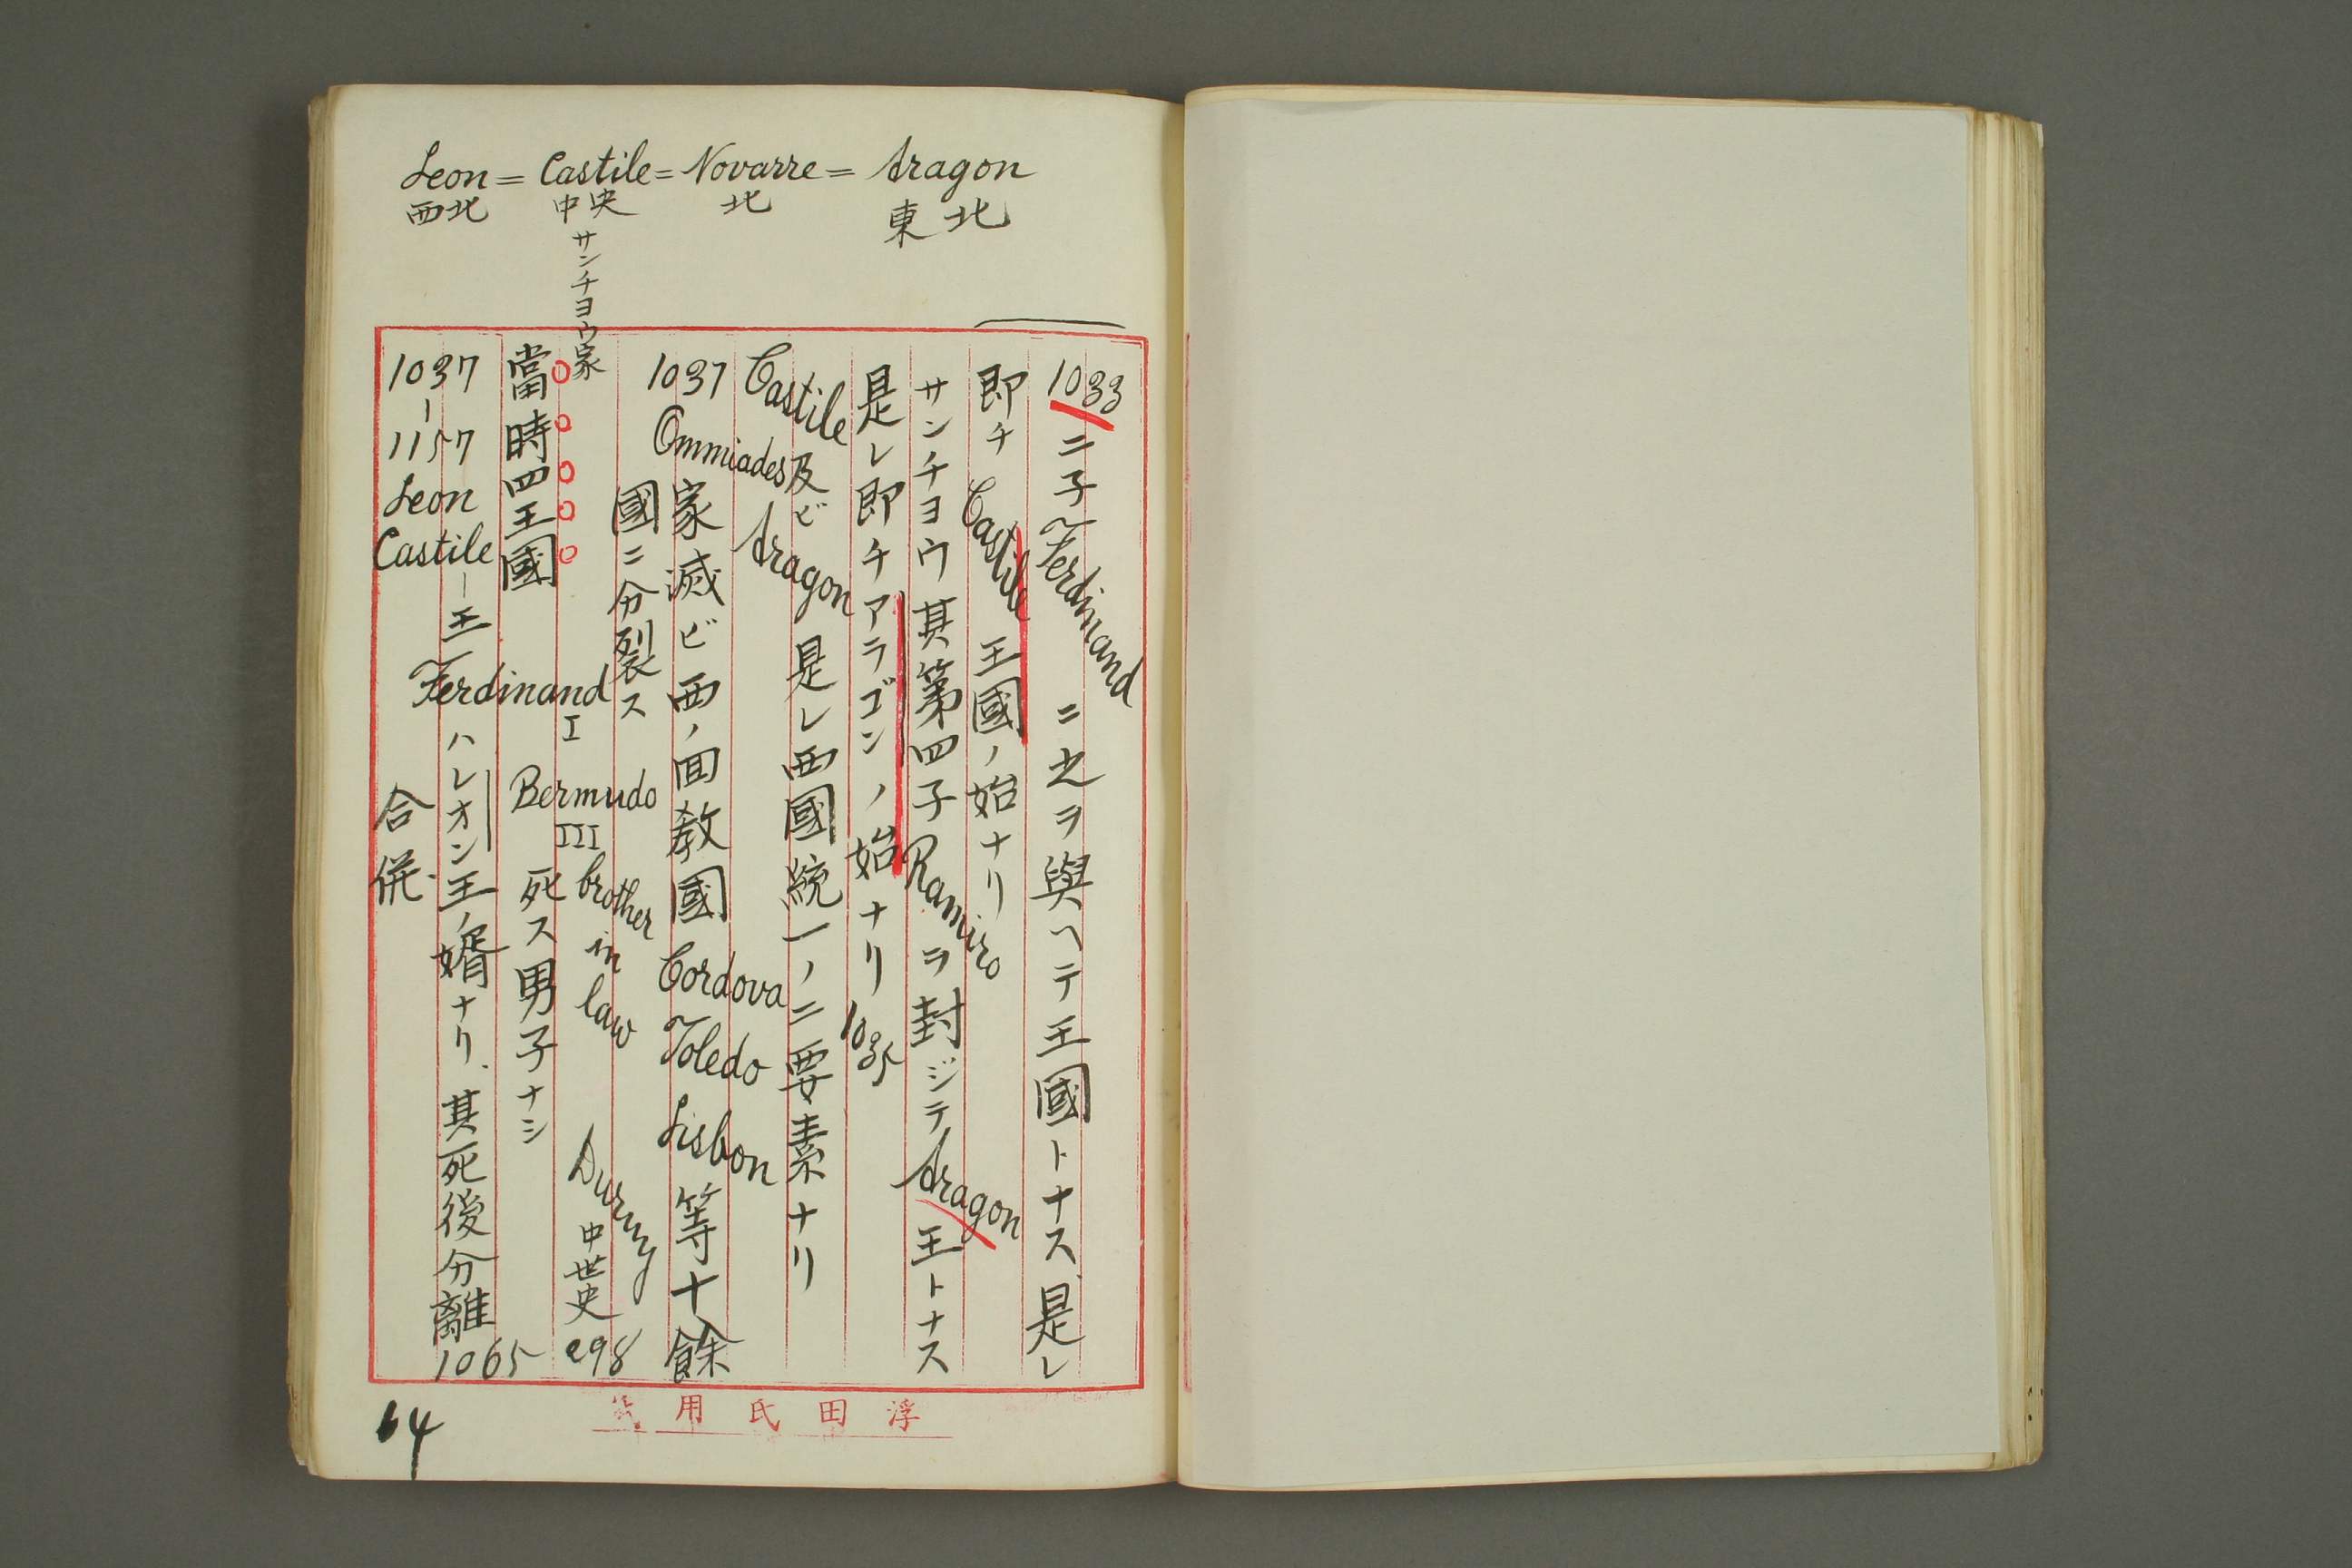 Leon = Castile = Novarre = Aragon
西北 中央 北 東北
1033 二子 Ferdinand ニ之ヲ與ヘテ王國トナス是レ
即チ Castile 王國ノ始ナリ
サンチヨウ其第四子 Ramiro ヲ封ジテ Aragon 王トナス
是レ即チアラゴンノ始ナリ 1035
Castile 及ビ Aragon 是レ西國統一ノ二要素ナリ
1037 Ommiades 家滅ビ西ノ回教國 Cordova Toledo Lisbon 等十餘
國ニ分裂ス
サンチヨウ家
brother in law
Duruy 中世史 298
當時四王國
Bermudo III 死ス男子ナシ
1037-1157 Leon Castile
王 Ferdinand I ハレオン王ノ婿ナリ.其死後分離 1065
合併
浮田氏用箋
64